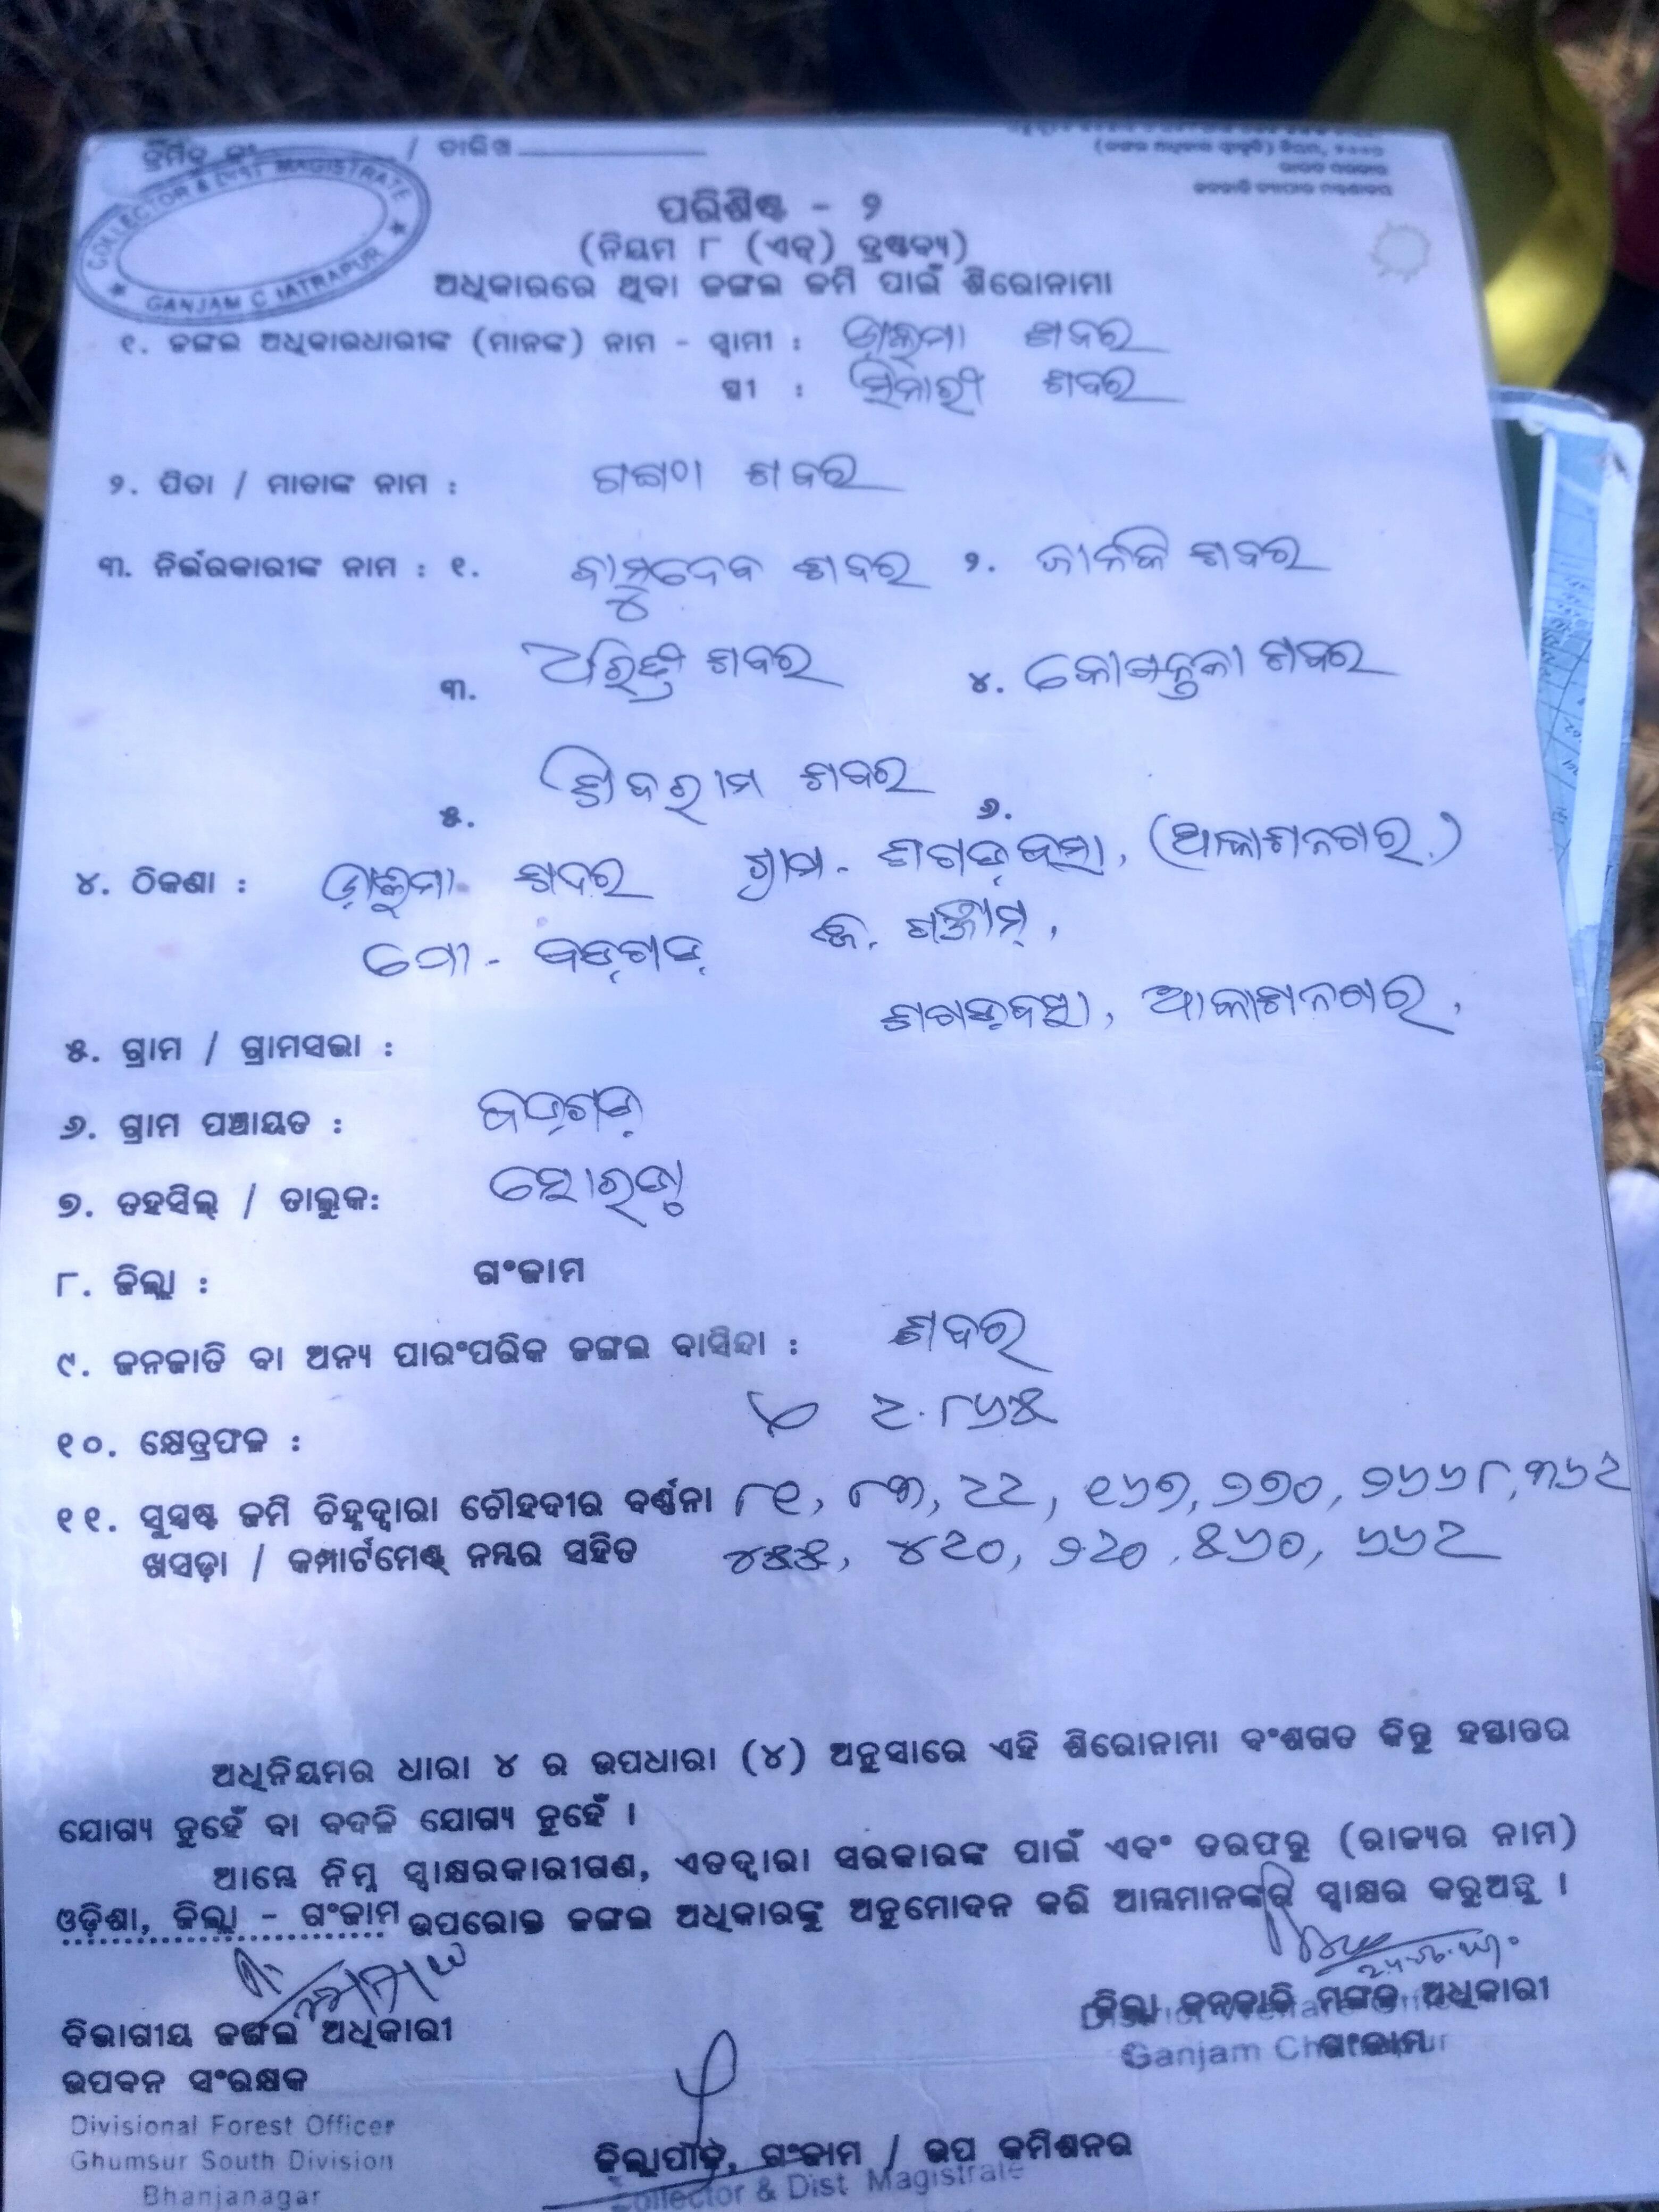 କ୍ରମିକ ନଂ / ତାରିଖ
(ଜଙ୍ଗଲ ଅଧିକାର ସ୍ୱୀକୃତି) ନିୟମ, ୨୦୦୭
ଭାରତ ସରକାର
ଜନଜାତି ବ୍ୟାପାର ମନ୍ତ୍ରଣାଳୟ
COLLECTOR & DIST MAGISTRATE
GANJAM CHATRAPUR
ପରିଶିଷ୍ଟ - ୨
(ନିୟମ ୮ (ଏଚ୍) ଦ୍ରଷ୍ଟବ୍ୟ)
ଅଧିକାରରେ ଥିବା ଜଙ୍ଗଲ ଜମି ପାଇଁ ଶିରୋନାମା
୧. ଜଙ୍ଗଲ ଅଧିକାରଧାରୀଙ୍କ (ମାନଙ୍କ) ନାମ - ସ୍ୱାମୀ : ଶବର
ସ୍ତ୍ରୀ : ମିନାରୀ ଶବର
୨. ପିତା / ମାତାଙ୍କ ନାମ : ଶବର
୩. ନିର୍ଭରକାରୀଙ୍କ ନାମ : ୧. ବାସୁଦେବ ଶବର ୨. ଜାନକି ଶବର
୩. ଶବର ୪. ଶବର
୫. ଶିବରାମ ଶବର ୬.
୪. ଠିକଣା : ଶବର ଗ୍ରାମ - ଶଗଡ଼ବସା, (ଆକାଶନଗର)
ପୋ - ବଡ଼ଗଡ଼ ଜି. ଗଞ୍ଜାମ୍,
୫. ଗ୍ରାମ / ଗ୍ରାମସଭା : ଶଗଡ଼ବସା, ଆକାଶନଗର,
୬. ଗ୍ରାମ ପଞ୍ଚାୟତ : ବଡ଼ଗଡ଼
୭. ତହସିଲ୍ / ତାଲୁକ: ସୋରଡ଼ା
୮. ଜିଲ୍ଲା : ଗଂଜାମ
୯. ଜନଜାତି ବା ଅନ୍ୟ ପାରଂପରିକ ଜଙ୍ଗଲ ବାସିନ୍ଦା : ଶବର
୧୦. କ୍ଷେତ୍ରଫଳ : ୨.୮୬୫
୧୧. ସୁସ୍ପଷ୍ଟ ଜମି ଚିହ୍ନଦ୍ୱାରା ଚୌହଦୀର ବର୍ଣ୍ଣନା ୮୧, ୮୩, ୨୨, ୧୬୭, ୭୭୦, ୨୬୬୮, ୩୬୨
ଖସଡ଼ା / କମ୍ପାର୍ଟମେଣ୍ଟ୍ ନମ୍ବର ସହିତ ୪୫୫, ୪୨୦, ୨୨୦, ୫୬୦, ୬୬୨
ଅଧିନିୟମର ଧାରା ୪ ର ଉପଧାରା (୪) ଅନୁସାରେ ଏହି ଶିରୋନାମା ବଂଶଗତ କିନ୍ତୁ ହସ୍ତାନ୍ତର
ଯୋଗ୍ୟ ନୁହେଁ ବା ବଦଳି ଯୋଗ୍ୟ ନୁହେଁ ।
ଆମ୍ଭେ ନିମ୍ନ ସ୍ୱାକ୍ଷରକାରୀଗଣ, ଏତଦ୍ୱାରା ସରକାରଙ୍କ ପାଇଁ ଏବଂ ତରଫରୁ (ରାଜ୍ୟର ନାମ)
ଓଡ଼ିଶା, ଜିଲ୍ଲା - ଗଂଜାମ ଉପରୋକ୍ତ ଜଙ୍ଗଲ ଅଧିକାରଙ୍କୁ ଅନୁମୋଦନ କରି ଆମ୍ଭମାନଙ୍କର ସ୍ୱାକ୍ଷର କରୁଅଛୁ ।
ବିଭାଗୀୟ ଜଙ୍ଗଲ ଅଧିକାରୀ
ଉପବନ ସଂରକ୍ଷକ
Divisional Forest Officer
Ghumsur South Division
Bhanjanagar
ଜିଲ୍ଲା ଜନଜାତି ମଙ୍ଗଳ ଅଧିକାରୀ
ଗଂଜାମ
District Welfare Officer
Ganjam Chatrapur
ଜିଲ୍ଲାପାଳ, ଗଂଜାମ / ଉପ କମିଶନର
Collector & Dist. Magistrate